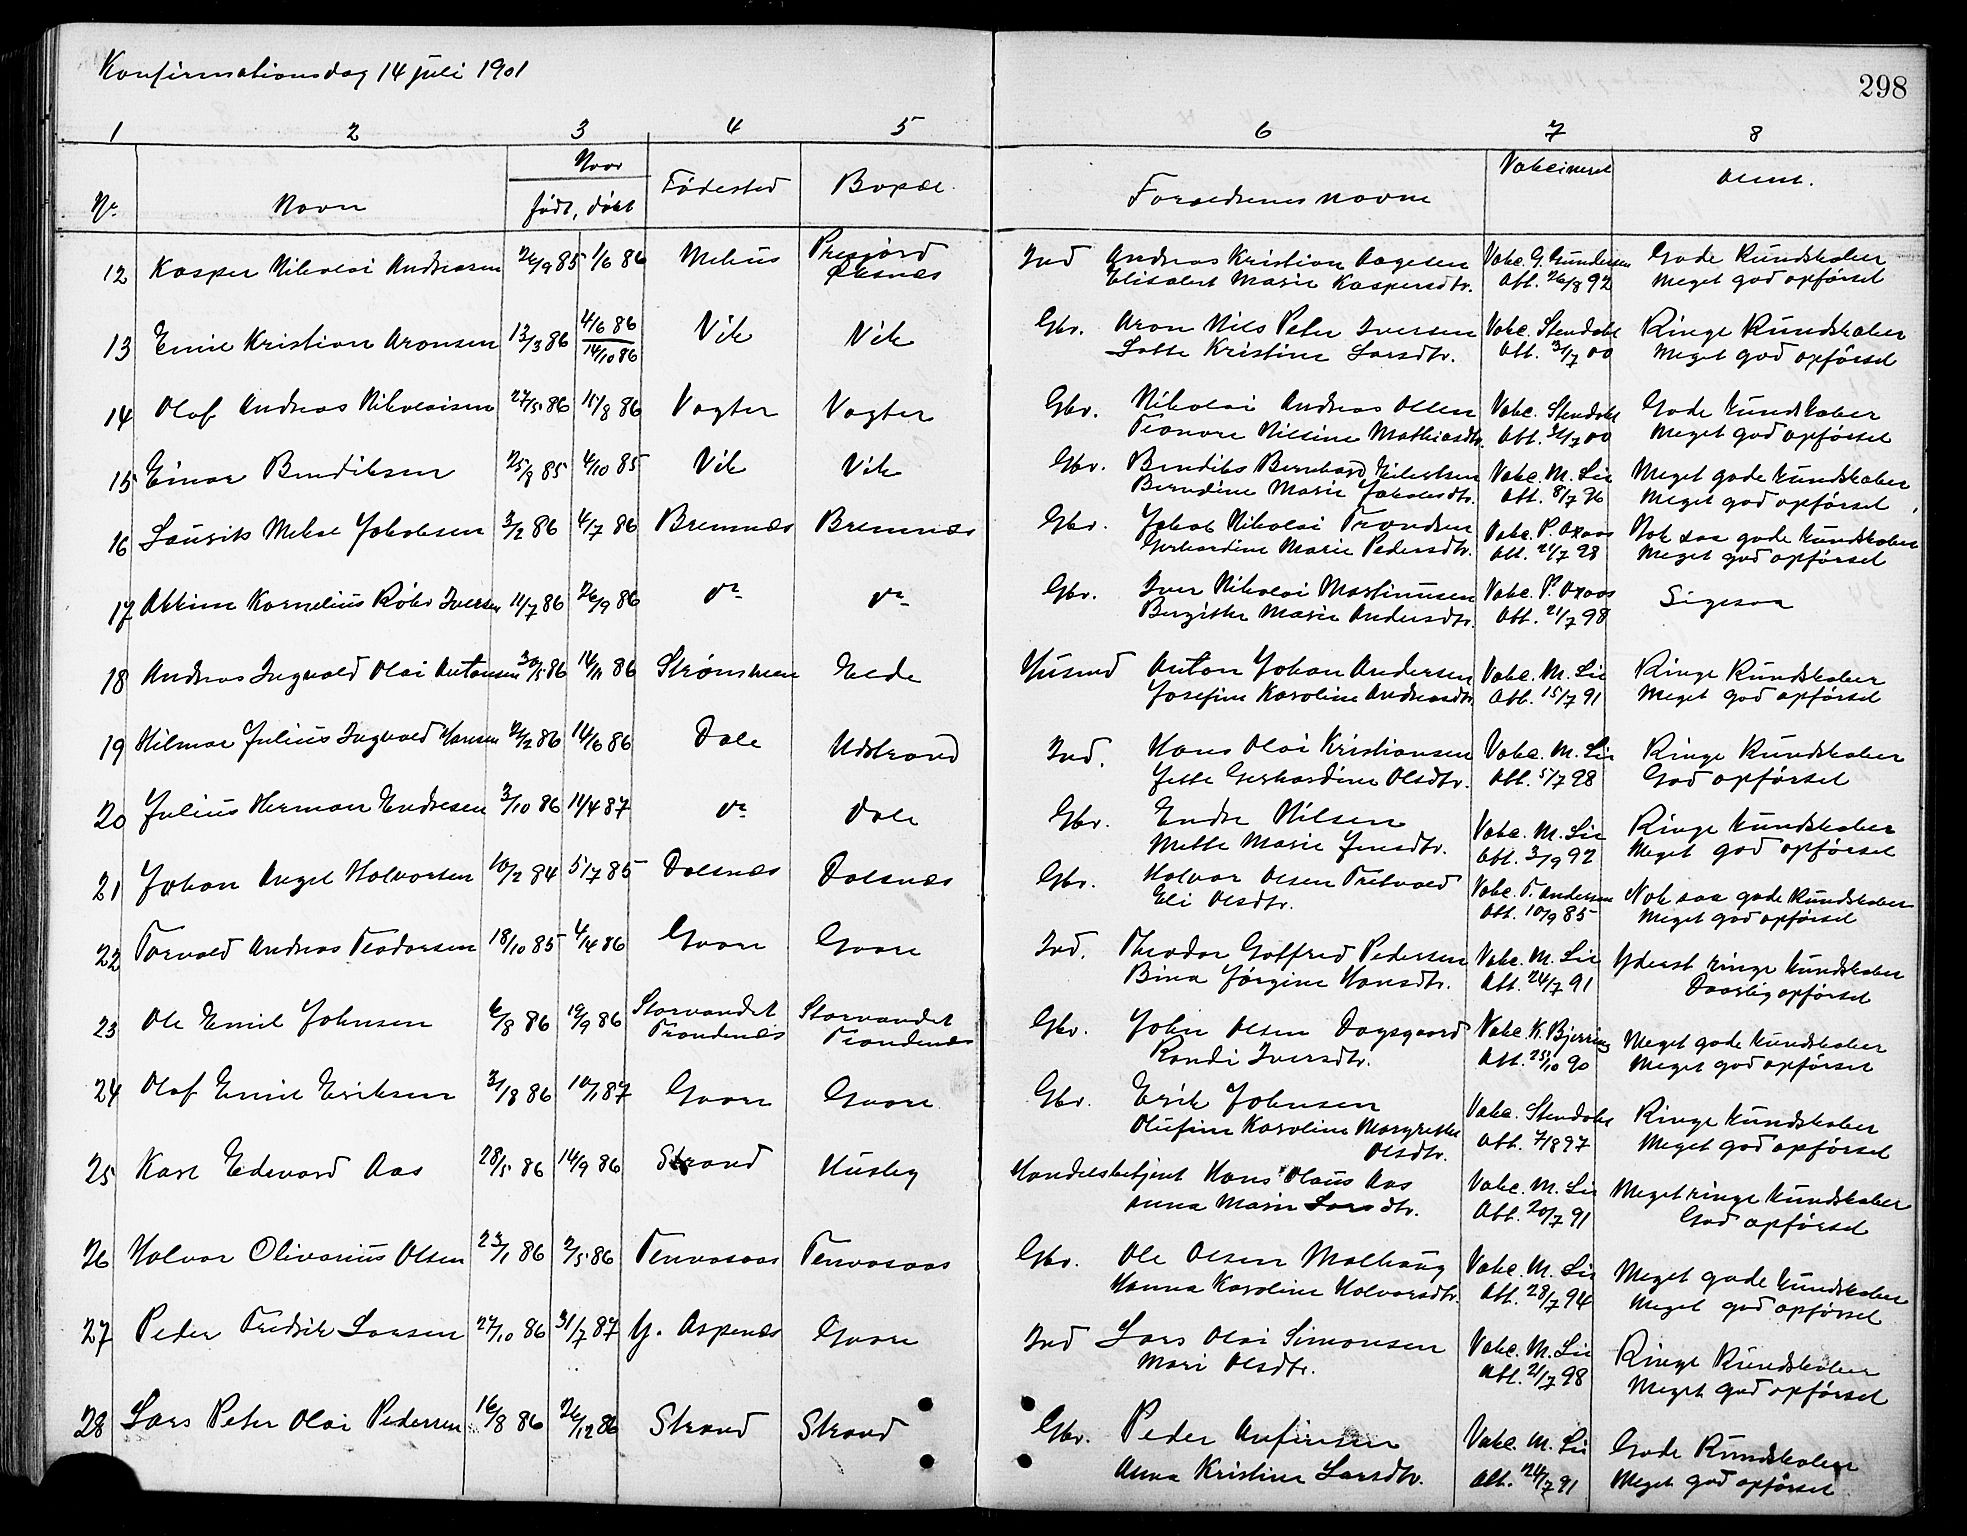 Konfirmationsdag 14 juli 1901
298
1 2 3 4 5 6 7 8
Naar
No. Navn født, døbt Fødested Bopæl. Forældrenes navne Vakcineret Anm.
12 Kasper Nikolai Andreasen 26/9 85 1/6 86 Melius Ind Andreas Kristian Aagesen Vakc. G. Gundersen Gode Kundskaber
Elisabet Marie Kaspersdtr. Att. 26/8 92 Meget god opførsel
13 Emil Kristian Aronsen 13/3 86 4/6 86 14/10 86 Vik Vik Gbr. Aron Nils Peter Iversen Vakc. Stendahl Ringe Kundskaber
Lotte Kristine Larsdtr. Att. 3/7 00 Meget god opførsel
14 Olaf Andreas Nikolaisen 27/5 86 15/8 86 Vagter Vagter Gbr. Nikolai Andreas Olsen Vakc. Stendahl Gode Kundskaber
Nilsine Mathiasdtr. Att. 3/7 00 Meget god opførsel
15 Einar Bendiksen 25/8 85 4/10 85 Vik Vik Gbr. Bendiks Bernhard Eilertsen Vakc. M. Lie Meget gode Kundskaber
Berndine Marie Jakobsdtr. Att. 8/7 96 Meget god opførsel
16 Laurits Mikal Jakobsen 3/2 86 4/7 86 Bremnæs Bremnæs Gbr. Jakob Nikolai Trondsen Vakc. P. Oxaas Nok saa gode Kundskaber
Gerhardine Marie Pedersdtr. Att. 21/7 98 Meget god opførsel
17 Kornelius Røkv Iversen 11/7 86 26/9 86 do do Gbr. Iver Nikolai Martinusen Vakc. P. Oxaas Ligesaa
Bergithe Marie Andersdtr. Att. 21/7 98
18 Andreas Ingvald Olai Antonsen 30/5 86 14/11 86 Elde Husmd Anton Johan Andersen Vakc. M. Lie Ringe Kundskaber
Josefine Karoline Andreasdtr. Att. 15/7 91 Meget god opførsel
19 Hilmar Julius Ingvald Hansen 22/2 86 14/6 86 Dale Udstrand Ind. Hans Olai Kristiansen Vakc. M. Lie Ringe Kundskaber
Jette Gerhardine Olsdtr. Att. 5/7 98 God opførsel
20 Julius Herman Endresen 3/10 86 11/4 87 do Dale Gbr. Endre Nilsen Vakc. M. Lie Ringe Kundskaber
Mette Marie Jensdtr. Att. 3/9 92 Meget god opførsel
21 Johan Angel Halvorsen 10/2 84 5/7 85 Dalsnæs Dalsnæs Gbr. Halvor Olsen Vakc. T. Andersen Nok saa gode Kundskaber
Eli Olsdtr. Att. 10/9 85 Meget god opførsel
22 Torvald Andreas Teodorsen 18/10 85 4/4 86 Gaare Gaare Ind. Theodor Gotfred Pedersen Vakc. M. Lie Yderst ringe Kundskaber
Bina Jørgine Hansdtr. Att. 24/7 91 Daarlig opførsel
23 Ole Emil Johnsen 6/8 86 19/9 86 Storvandet Storvandet Gbr. John Olsen Dagsgaard Vakc. K. Bjerring Meget gode Kundskaber
Trondenæs Trondenæs Randi Iversdtr. Att. 25/10 90 Meget god opførsel
24 Olaf Emil Eriksen 31/8 86 10/1 87 Gaare Gaare Gbr. Erik Johnsen Vakc. Stendahl Ringe Kundskaber
Olufine Karoline Margrethe Att. 7/8 97 Meget god opførsel
Olsdtr.
25 Karl Edevard Aas 28/5 86 14/9 86 Strand Husby Handelsbetjent Hans Olaus Aas Vakc. M. Lie Meget ringe Kundskaber
Anna Marie Larsdtr. Att. 20/7 91 God opførsel
26 Halvor Olivarius Olsen 23/1 86 2/5 86 Tennasaas Tennasaas Gbr. Ole Olsen Molhaug Vakc. M. Lie Meget gode Kundskaber
Hanna Karoline Halvorsdtr. Att. 28/7 94 Meget god opførsel
27 Peder Fredrik Larsen 27/10 86 31/7 87 Y. Aspenæs Gaare Ind Lars Olai Simonsen Vakc. M. Lie Ringe Kundskaber
Mari Olsdtr. Att. 21/7 98 Meget god opførsel
28 Lars Peter Olai Pedersen 16/8 86 26/12 86 Strand Strand Gbr. Peder Anfinsen Vakc. M. Lie Gode Kundskaber
Anna Kristine Larsdtr. Att. 24/7 91 Meget god opførsel